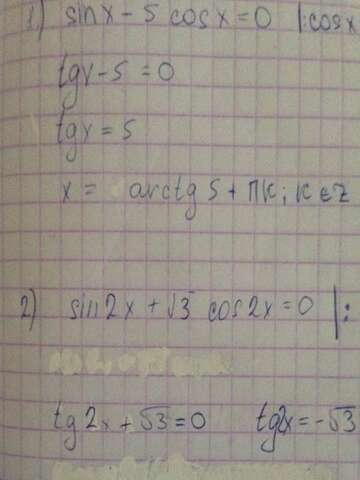 1) sin x - 5 cos x = 0 |:cos x
tg x - 5 = 0
tg x = 5
x = arctg 5 + πk; k ∈ Z
2) sin 2x + √3 cos 2x = 0 |:
tg 2x + √3 = 0 tg 2x = -√3